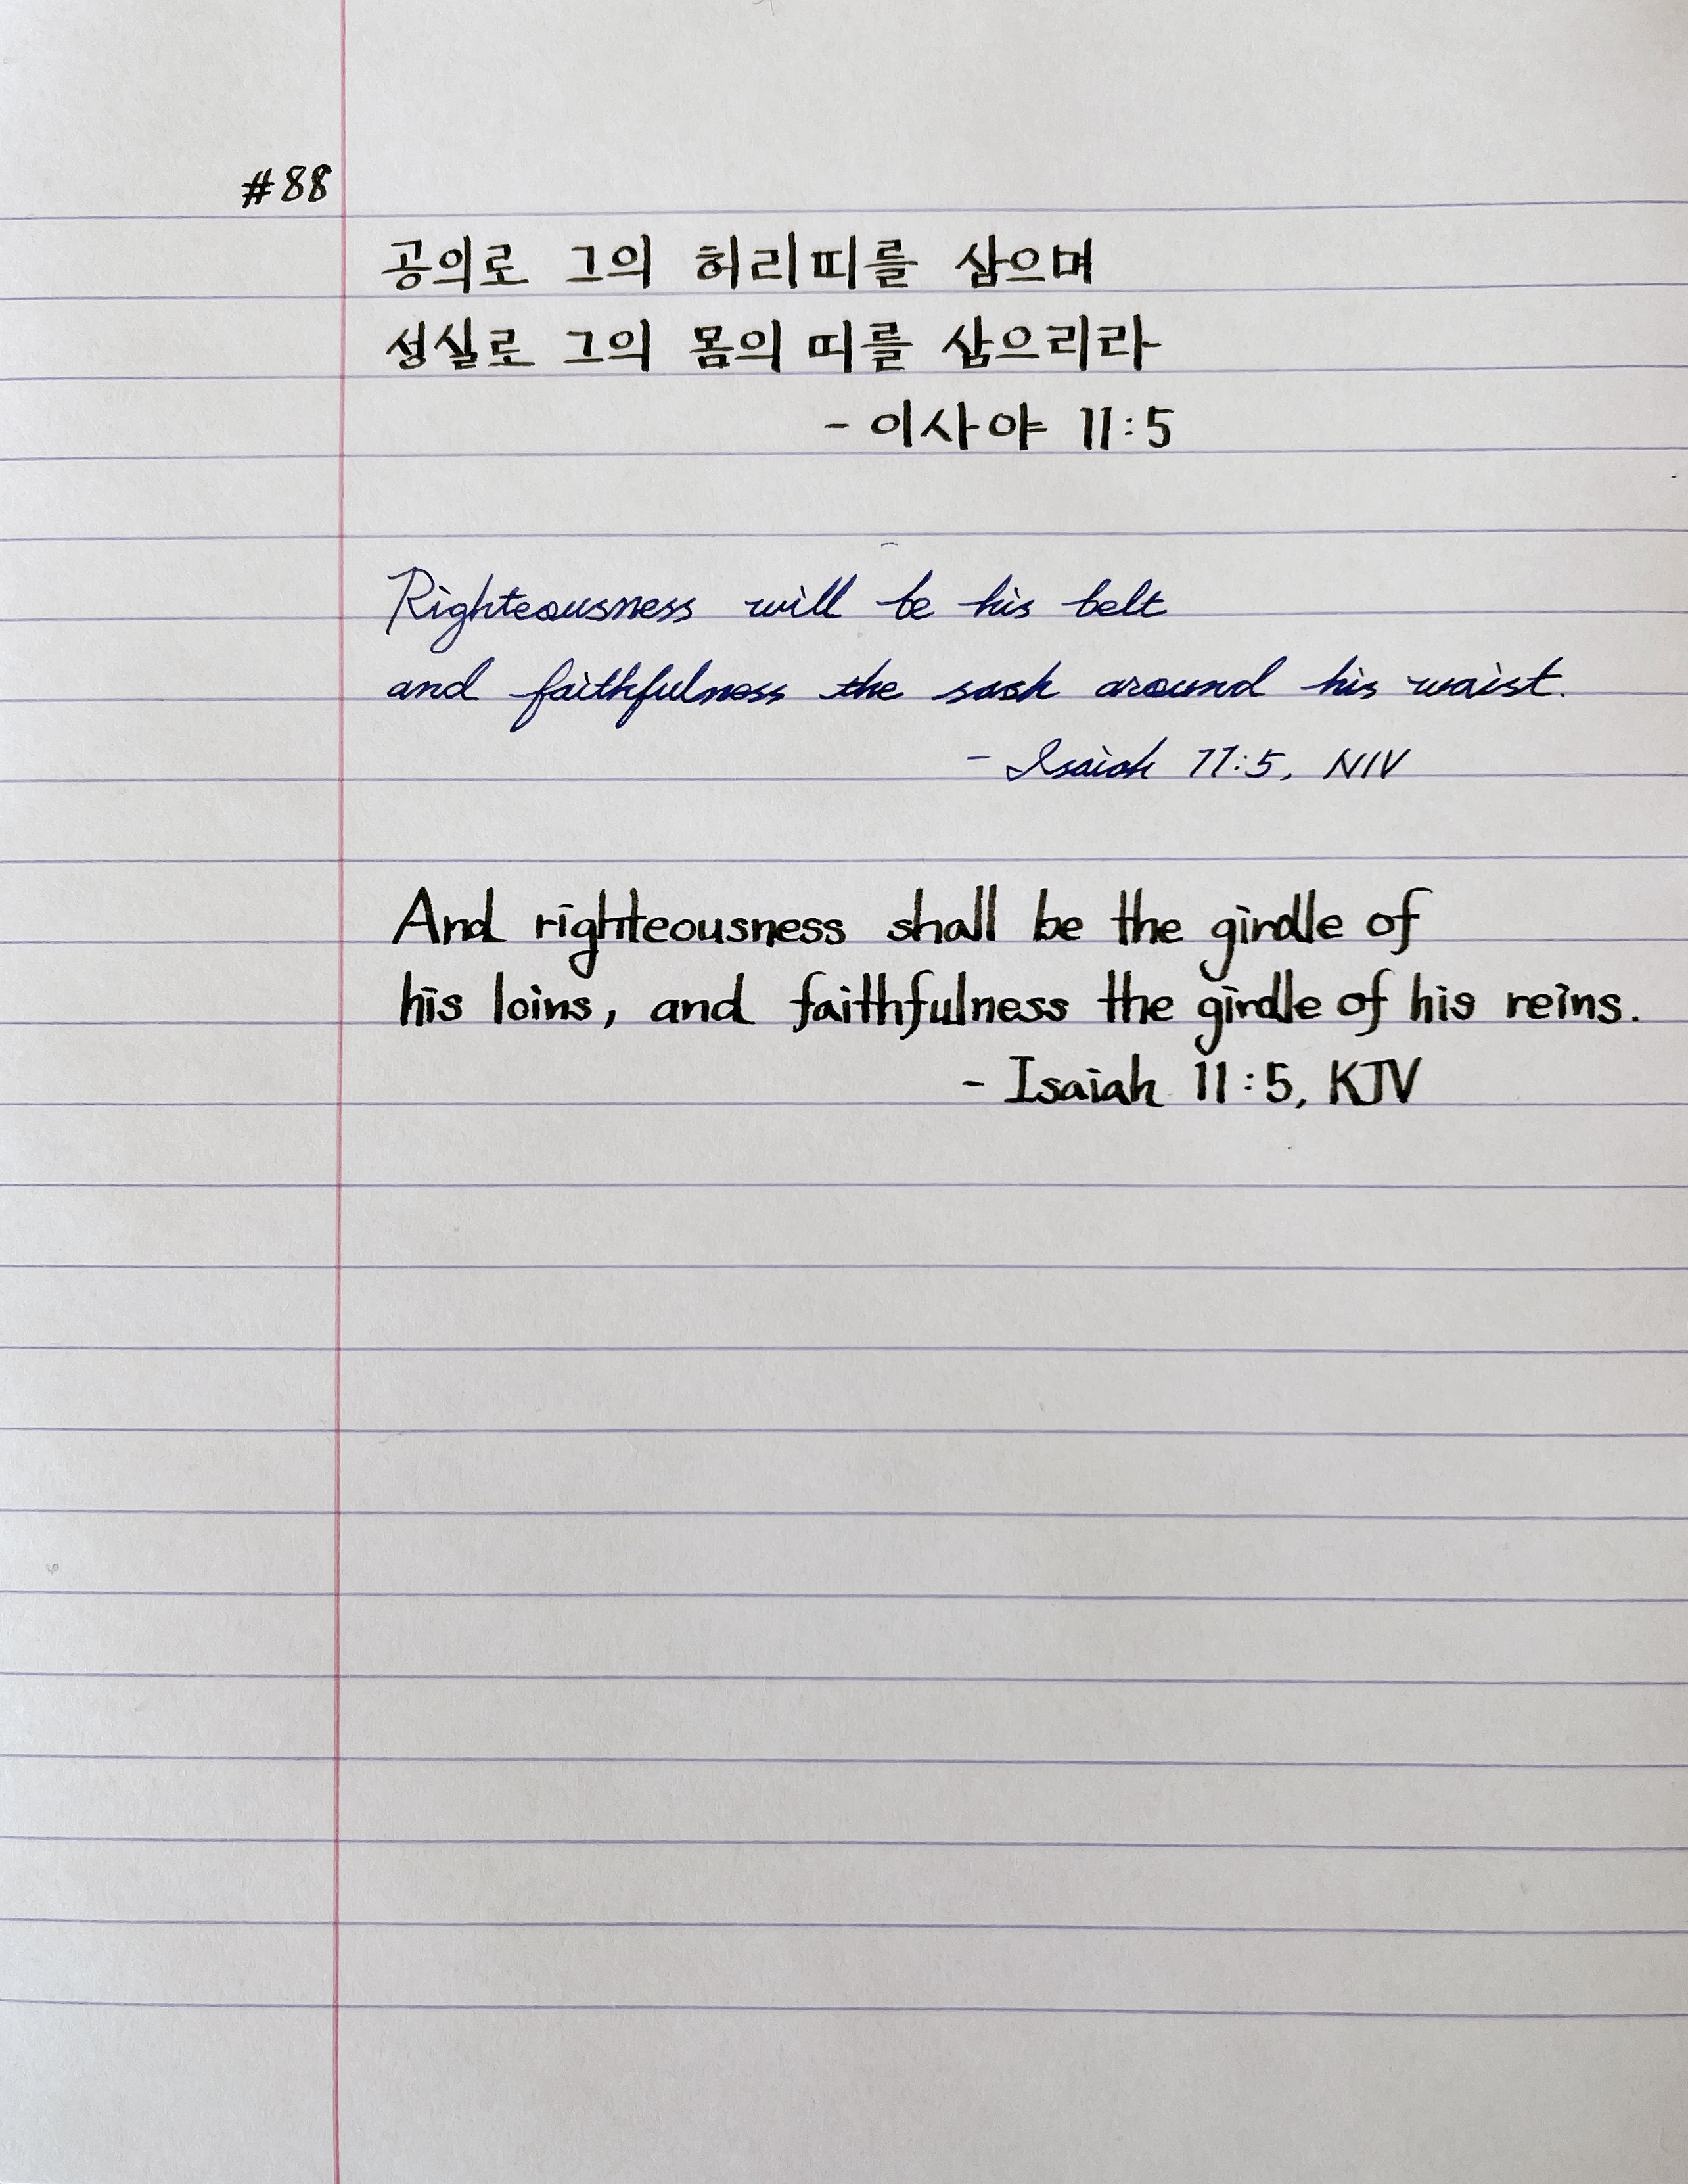 #88
공의로 그의 허리띠를 삼으며
성실로 그의 몸의 띠를 삼으리라
- 이사야 11:5
Righteousness will be his belt
and faithfulness the sash around his waist.
- Isaiah 11:5, NIV
And righteousness shall be the girdle of
his loins, and faithfulness the girdle of his reins.
- Isaiah 11:5, KJV